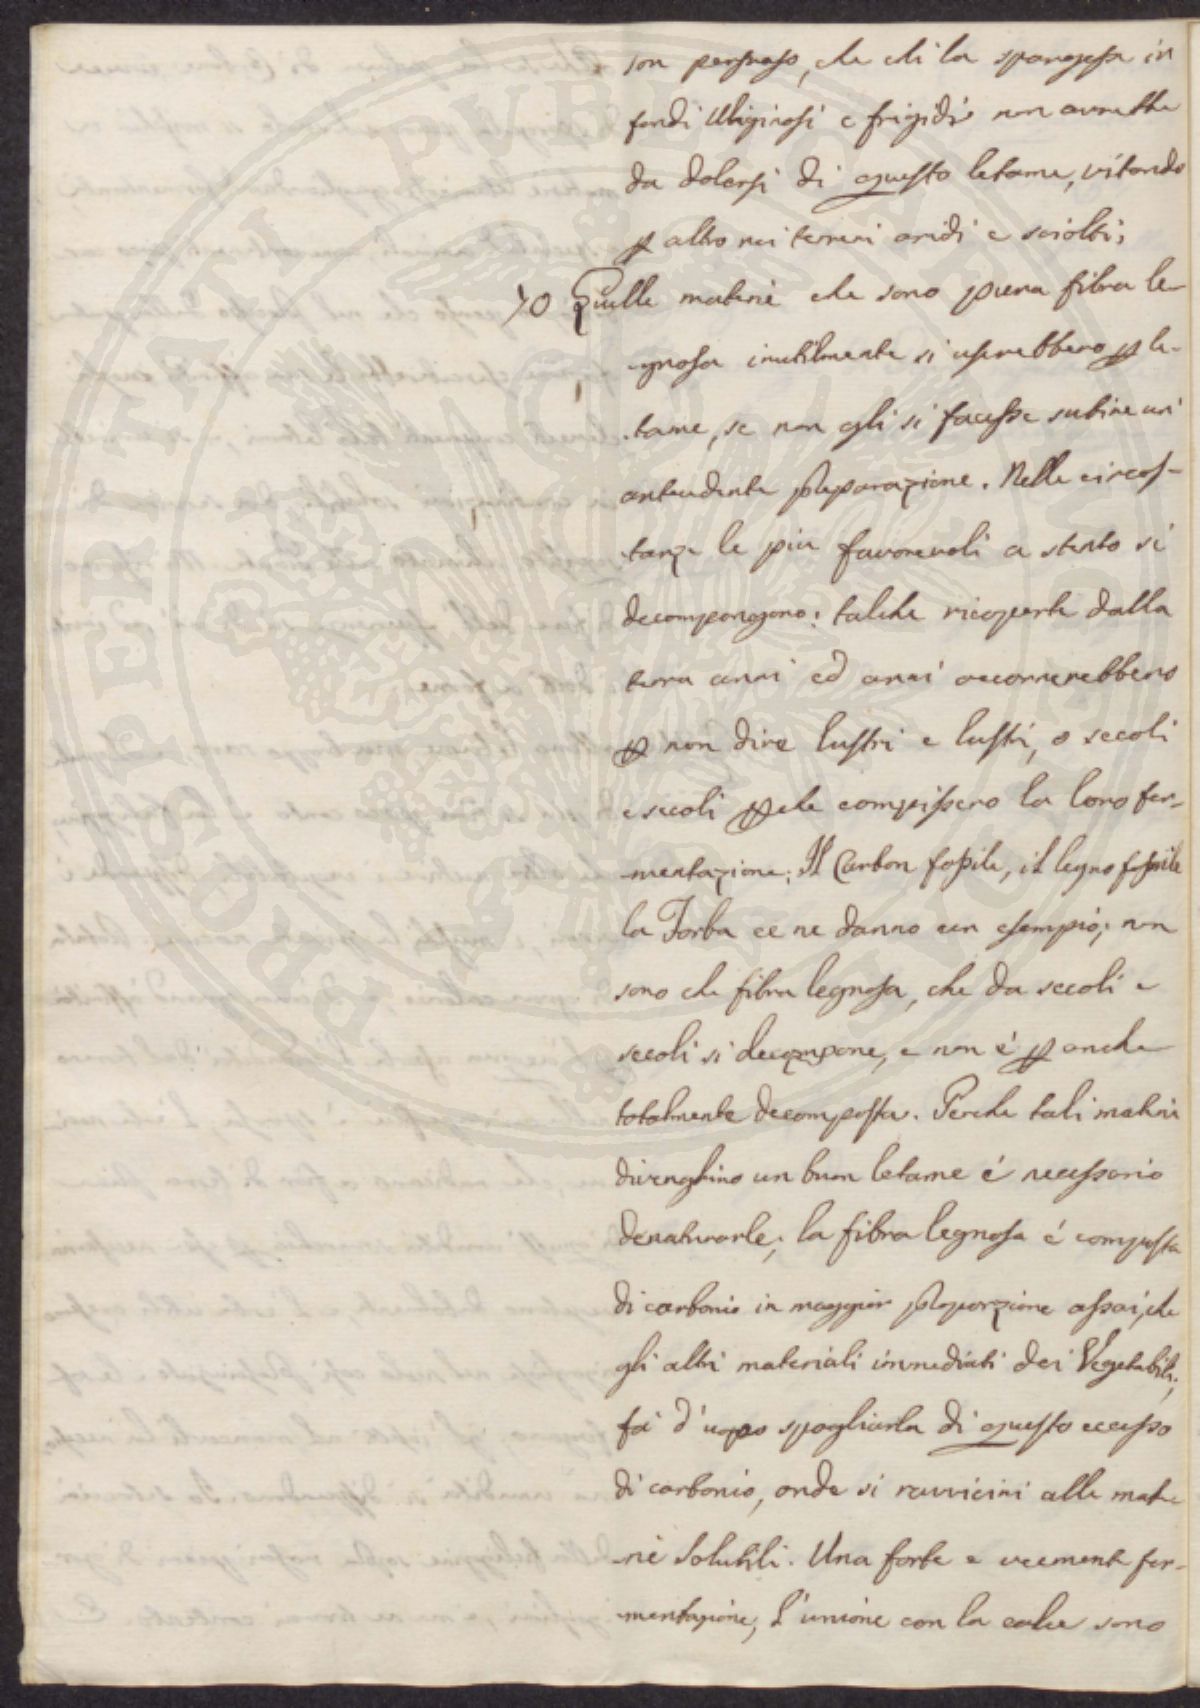 son persuaso, che chi la spargesse in
fondi Uliginosi e frigidi non avrebbe
da dolersi di questo letame, vitando
p altro nei terreni aridi e sciolti;
70 Quelle materie che sono piena fibra le-
gnosa inutilmente si userebbero p le-
tame, se non gli si facesse subire un
antecedente preparazione. Nelle circos-
tanze le piu favorevoli a stento si
decompongono: talche ricoperte dalla
terra anni ed anni occorrerebbero
p non dire lustri e lustri, o secoli
e secoli pche compissero la loro fer-
mentazione; Il Carbon fossile, il legno fossile
la Torba ce ne danno un esempio; non
sono che fibra legnosa, che da secoli e
secoli si decompone, e non é p anche
totalmente decomposta. Perche tali materie
divenghino un buon letame é necessario
denaturarle; la fibra legnosa é composta
di carbonio in maggior proporzione assai, che
gli altri materiali immediati dei Vegetabili;
fá d'uopo spogliarla di questo eccesso
di carbonio, onde si ravvicini alle mate-
rie Solubili. Una forte e veemente fer-
mentazione, l'unione con la calce sono
PROSPERITATI PUBLICAE AUGENDAE